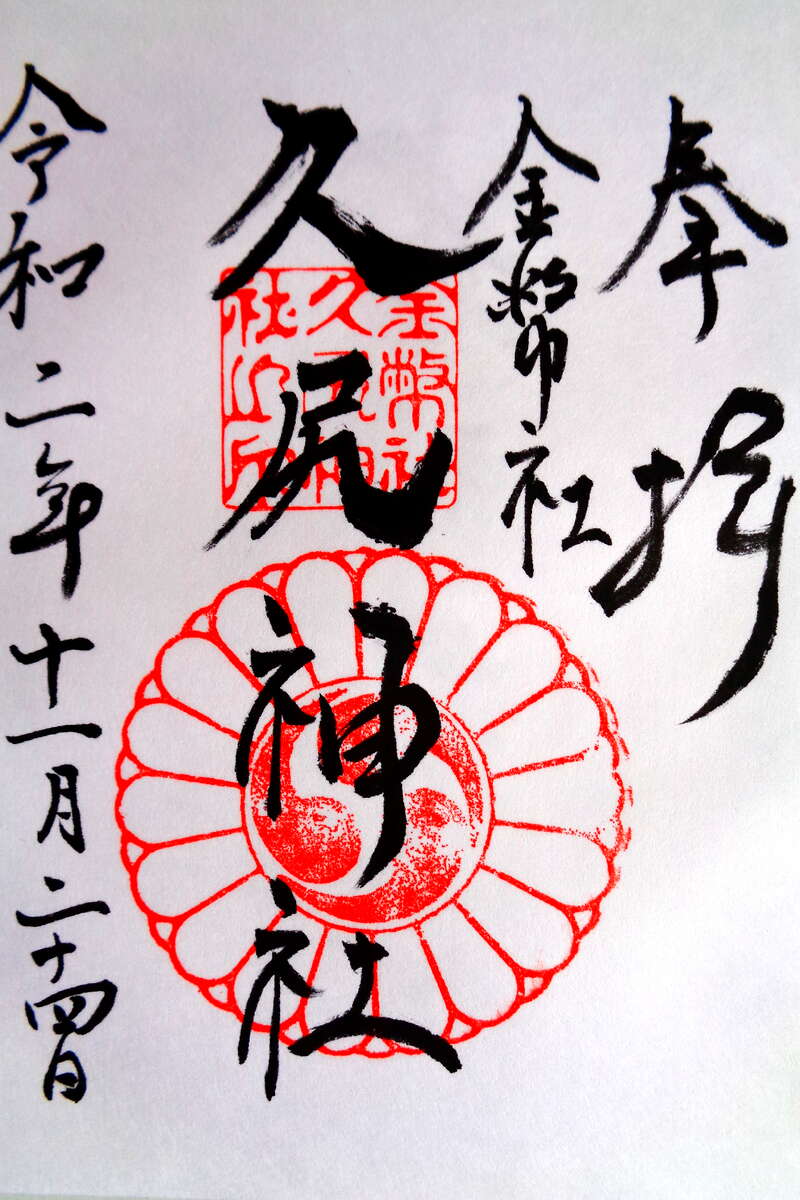 奉拝
金幣社
久尻神社
金幣社
久尻神
社之印
令和二年十一月二十四日